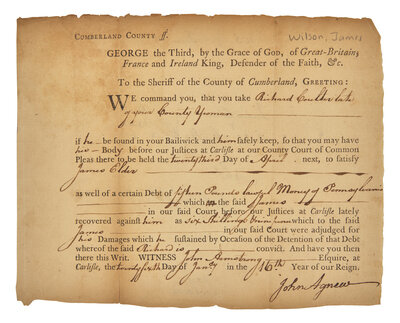 CUMBERLAND COUNTY ſſ.
Wilson, James
GEORGE the Third, by the Grace of GOD, of Great-Britain,
France and Ireland KING, Defender of the Faith, &c.
To the Sheriff of the County of Cumberland, GREETING:
WE command you, that you take Richard Coulter late
of your County Yeoman
if he be found in your Bailiwick and him ſafely keep, ſo that you may have
his Body before our Juſtices at Carliſle at our County Court of Common
Pleas there to be held the twenty third Day of April next, to ſatisfy
James Elder
as well of a certain Debt of fifteen Pounds lawful Money of Pennsylvania
which the ſaid James
in our ſaid Court before our Juſtices at Carliſle lately
recovered againſt him as six Shillings which to the ſaid
James in our ſaid Court were adjudged for
his Damages which he ſuſtained by Occaſion of the Detention of that Debt
whereof the ſaid Richard is convict. And have you then
there this Writ. WITNESS John Armstrong Eſquire, at
Carliſle, the twenty sixth Day of Jany. in the 16th Year of our Reign.
John Agnew